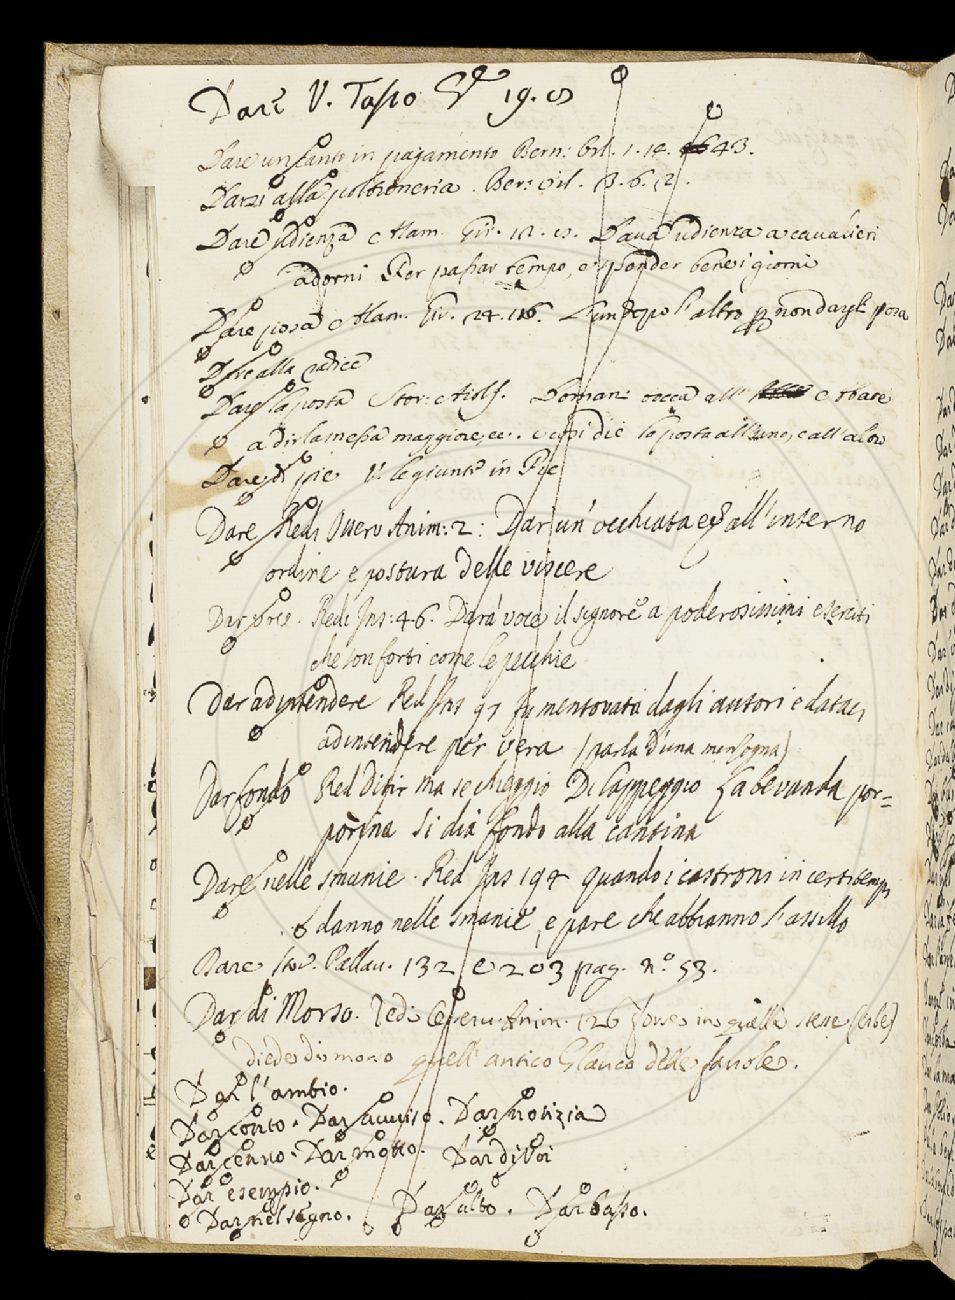 Dare V. Tasso 19.
Dare un canto in pagamento Bern: Orl. 1. 14. 43.
Darsi alla poltroneria. Bern: Orl. 3. 6. 12.
Dare udienza Alam. Gir. Dava udienza a cavalieri
adorni Per passar tempo, e spender bene i giorni
Dare posa Alam. Gir. 24. 116. L'un dopo l'altro non dargli posa
Dare alla radice
Dar la posta Stor: Aiolf. all'
a dir la messa maggiore, la posta all'uno, e all'altro
Dare V. le giunte in
Dare Redi Osserv. Anim: 2: Dar un' occhiata all'interno
ordine e postura delle viscere
Dar voce. Redi Ins: 46. Darà voce il signore a poderosissimi eserciti
che son forti come le pecchie
Dar ad intendere Red Ins 97 fu mentovata dagli autori e data
ad intendere per vera (parla d'una menzogna)
Dar fondo Red Ditir Ma se cheggio Di lappeggio La bevanda por=
porina Si dia fondo alla cantina
Dare nelle smanie. Red Ins 194 quando i castroni in certi tempi
danno nelle smanie, e pare che abbianno l'assillo
Dare Stor. Pallav. 132 e 203 pag. n.º 53.
Dar di Morso. Redi Osserv. Anim. 126 forse in quelle stesse (erbe)
diede di morso quell'antico Glauco delle favole.
Dar l'ambio.
Dar conto. Dar avviso. Dar notizia
Dar cenno. Dar motto. Dar di Voi
Dar esempio.
Dar nel segno. Dar alto. Dar basso.